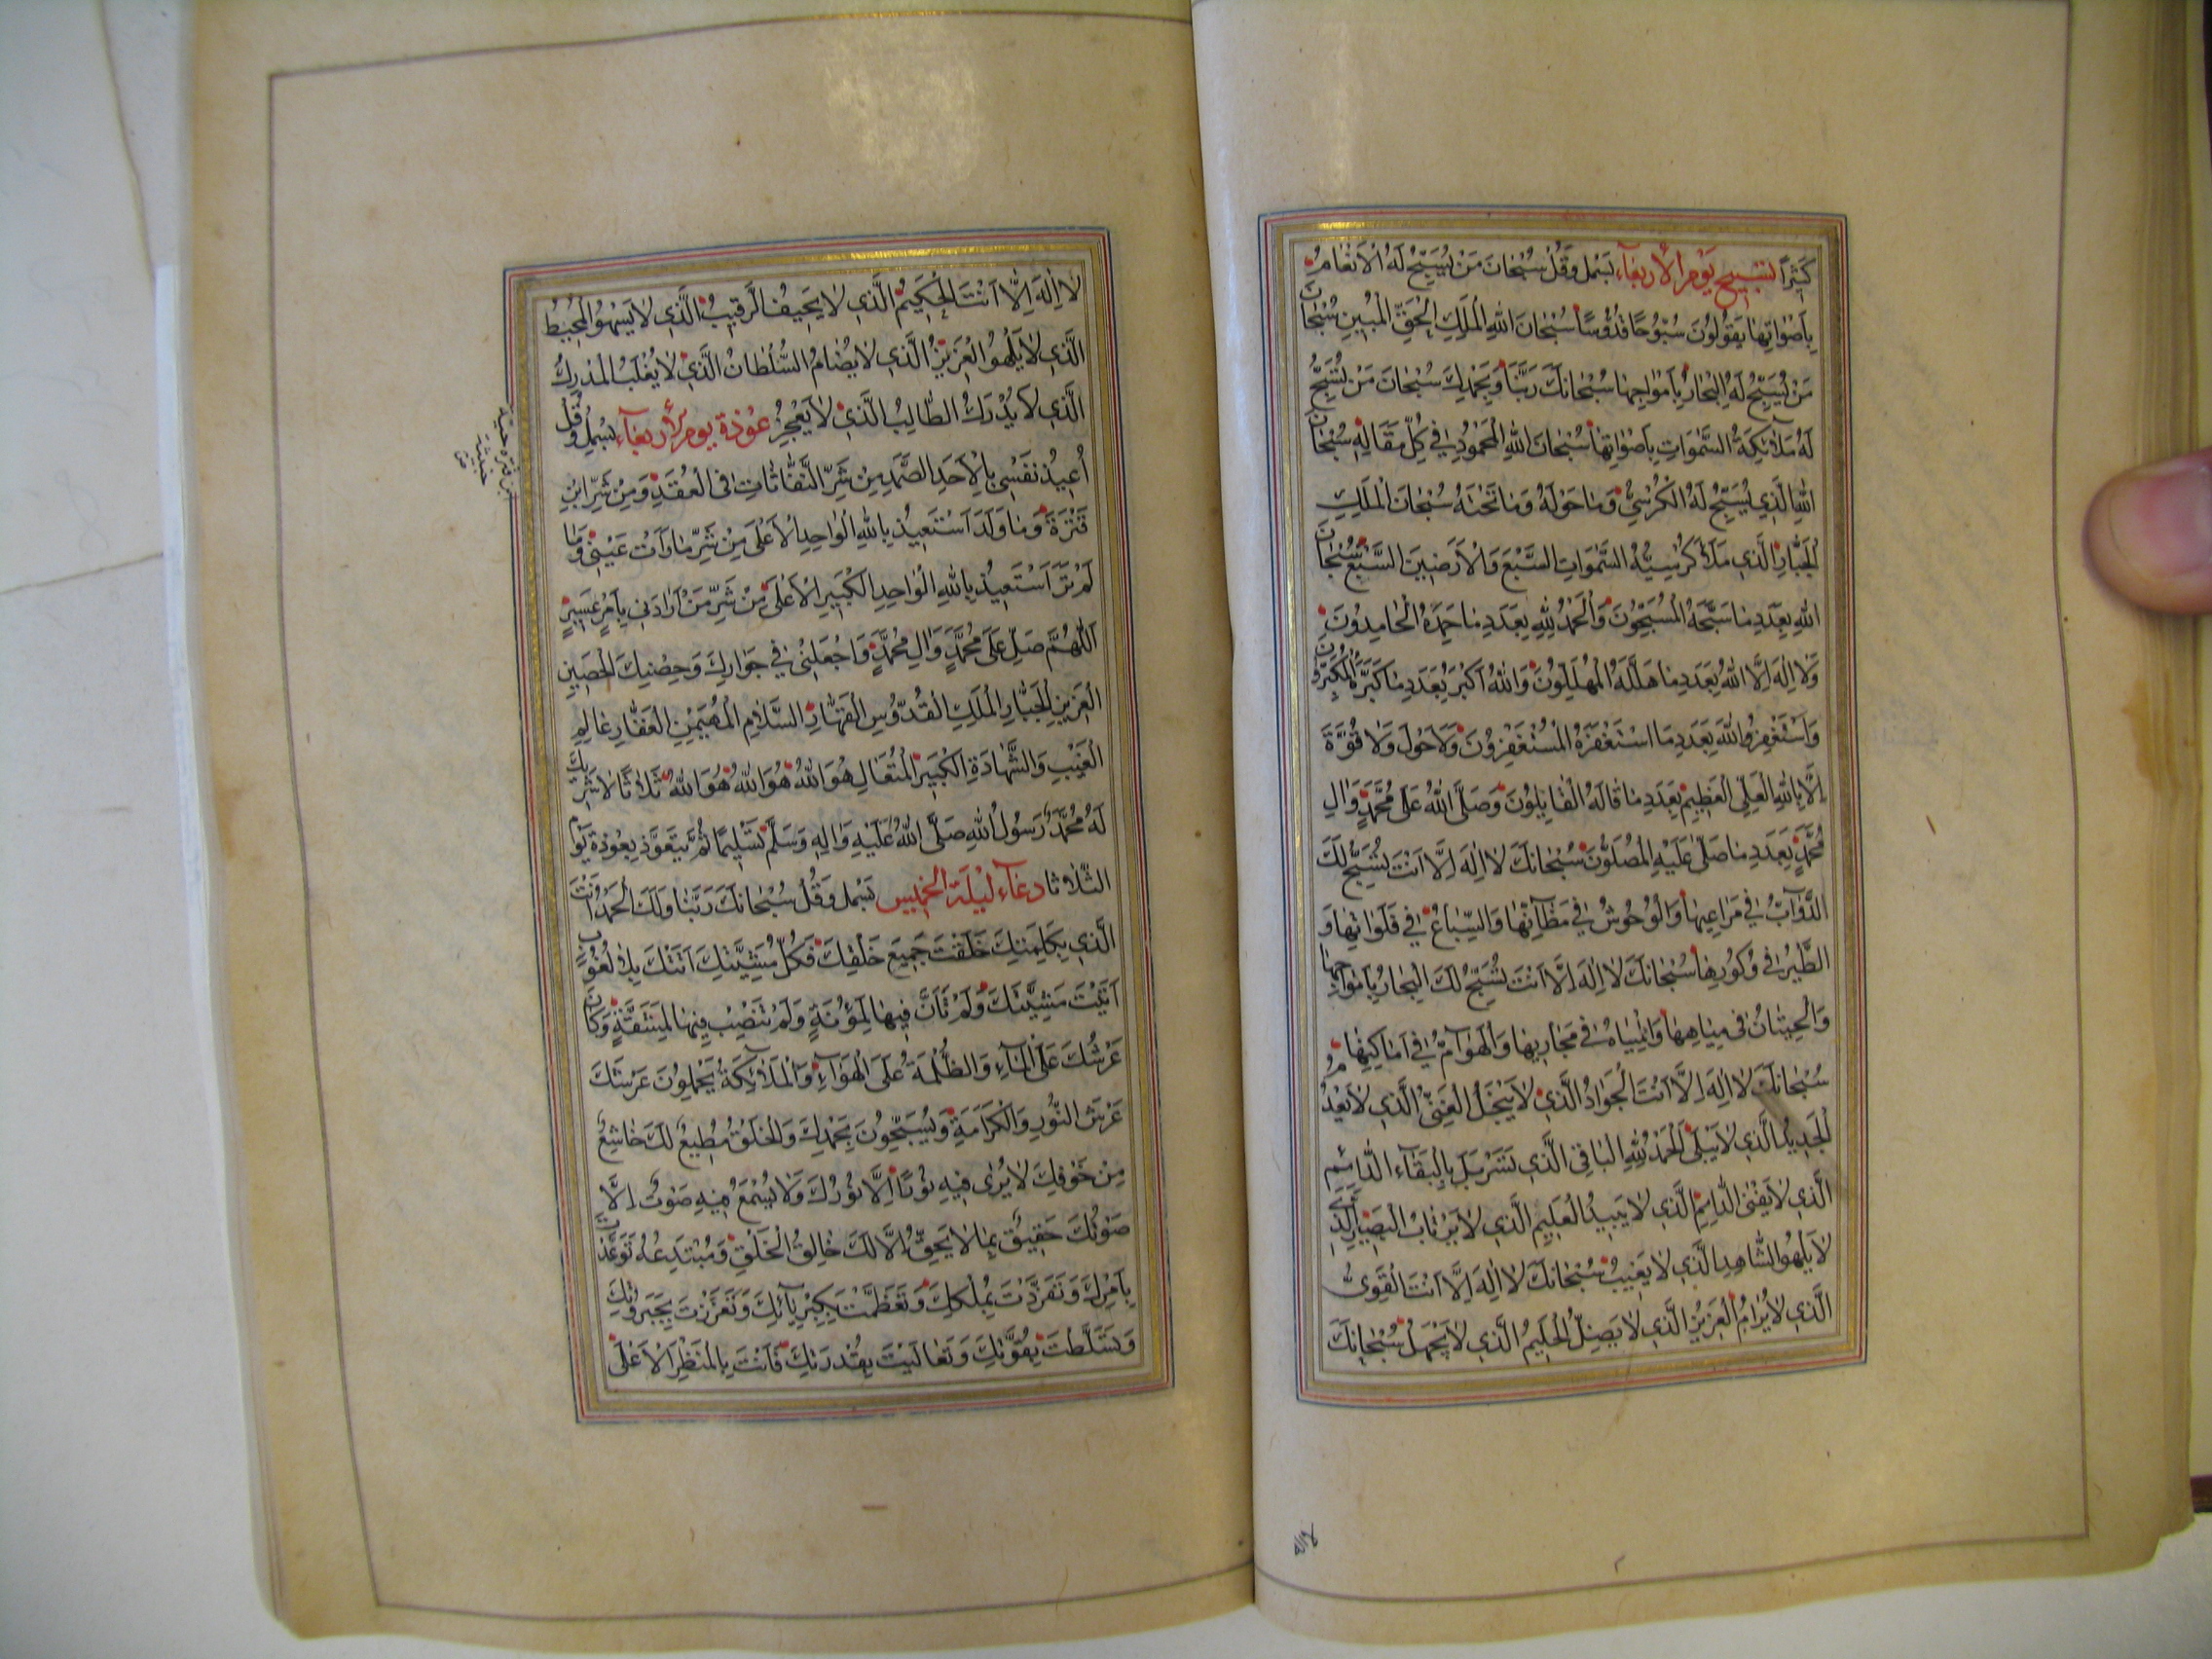 كَثِيرًا تسبيح يَوْمِ الْأَرْبِعَآءِ بَسْمِل وَقُلْ سُبْحَانَ مَنْ يُسَبِّحُ لَهُ الْاَنْعَامُ
بِاَصْوَاتِهَا يَقُولُونَ سُبُّوحًا قُدُّوسًا سُبْحَانَ اللهِ الْمَلِكِ الْحَقِّ الْمُبِينِ سُبْحَانَ
مَنْ يُسَبِّحُ لَهُ الْبِحَارُ بِاَمْوَاجِهَا سُبْحَانَكَ رَبَّنَا وَبِحَمْدِكَ سُبْحَانَ مَنْ يُسَبِّحُ
لَهُ مَلَآئِكَةُ السَّمٰوَاتِ بِاَصْوَاتِهَا سُبْحَانَ اللهِ الْمَحْمُودِ فِي كُلِّ مَقَالِهِ سُبْحَانَ
اللهِ الَّذِي يُسَبِّحُ لَهُ الْكُرْسِيُّ وَمَا حَوْلَهُ وَمَا تَحْتَهُ سُبْحَانَ الْمَلِكِ
الْجَبَّارِ الَّذِي مَلَأَ كُرْسِيُّهُ السَّمٰوَاتِ السَّبْعَ وَالْاَرَضِينَ السَّبْعَ سُبْحَانَ
اللهِ بِعَدَدِ مَا سَبَّحَهُ الْمُسَبِّحُونَ وَالْحَمْدُ لِلّٰهِ بِعَدَدِ مَا حَمِدَهُ الْحَامِدُونَ
وَلَا اِلٰهَ اِلَّا اللهُ بِعَدَدِ مَا هَلَّلَهُ الْمُهَلِّلُونَ وَاللهُ اَكْبَرُ بِعَدَدِ مَا كَبَّرَهُ الْمُكَبِّرُونَ
وَاَسْتَغْفِرُ اللهَ بِعَدَدِ مَا اسْتَغْفَرَهُ الْمُسْتَغْفِرُونَ وَلَا حَوْلَ وَلَا قُوَّةَ
اِلَّا بِاللهِ الْعَلِيِّ الْعَظِيمِ بِعَدَدِ مَا قَالَهُ الْقَآئِلُونَ وَصَلَّى اللهُ عَلَى مُحَمَّدٍ وَالِ
مُحَمَّدٍ بِعَدَدِ مَا صَلَّى عَلَيْهِ الْمُصَلُّونَ سُبْحَانَكَ لَا اِلٰهَ اِلَّا اَنْتَ تُسَبِّحُ لَكَ
الدَّوَآبُّ فِي مَرَاعِيهَا وَالْوُحُوشُ فِي مَظَآنِّهَا وَالسِّبَاعُ فِي فَلَوَاتِهَا وَ
الطَّيْرُ فِي وُكُورِهَا سُبْحَانَكَ لَا اِلٰهَ اِلَّا اَنْتَ تُسَبِّحُ لَكَ الْبِحَارُ بِاَمْوَاجِهَا
وَالْحِيتَانُ فِي مِيَاهِهَا وَالْمِيَاهُ فِي مَجَارِيهَا وَالْهَوَآمُّ فِي اَمَاكِنِهَا
سُبْحَانَكَ لَا اِلٰهَ اِلَّا اَنْتَ الْجَوَادُ الَّذِي لَا يَبْخَلُ الْغَنِيُّ الَّذِي لَا يَعْدُمُ
الْجَدِيدُ الَّذِي لَا يَبْلَى الْحَمْدُ لِلّٰهِ الْبَاقِي الَّذِي تَسَرْبَلَ بِالْبَقَآءِ الدَّآئِمِ
الَّذِي لَا يَفْنَى الدَّآئِمِ الَّذِي لَا يَبِيدُ الْعَلِيمِ الَّذِي لَا يَرْتَابُ الْبَصِيرِ الَّذِي
لَا يَلْهُو الشَّاهِدِ الَّذِي لَا يَغِيبُ سُبْحَانَكَ لَا اِلٰهَ اِلَّا اَنْتَ الْقَوِيُّ
الَّذِي لَا يُرَامُ الْعَزِيزُ الَّذِي لَا يَضِلُّ الْحَلِيمُ الَّذِي لَا يَجْهَلُ سُبْحَانَكَ
لا اله
لَا اِلٰهَ اِلَّا اَنْتَ الْحَكِيمُ الَّذِي لَا يَحِيفُ الرَّقِيبُ الَّذِي لَا يَسْهُو الْمُحِيطُ
الَّذِي لَا يَلْهُو الْعَزِيزُ الَّذِي لَا يُضَامُ السُّلْطَانُ الَّذِي لَا يُغْلَبُ الْمُدْرِكُ
الَّذِي لَا يُدْرَكُ الطَّالِبُ الَّذِي لَا يَعْجِزُ عُوْذَة يوم الأربعآء بَسْمِل وَقُلْ
اُعِيذُ نَفْسِي بِالْاَحَدِ الصَّمَدِ مِنْ شَرِّ النَّفَّاثَاتِ فِي الْعُقَدِ وَمِنْ شَرِّ ابْنِ
قَتْرَةَ وَمَا وَلَدَ اَسْتَعِيذُ بِاللهِ الْوَاحِدِ الْاَعْلَى مِنْ شَرِّ مَا رَاَتْ عَيْنِي وَمَا
لَمْ تَرَ اَسْتَعِيذُ بِاللهِ الْوَاحِدِ الْكَبِيرِ الْاَعْلَى مِنْ شَرِّ مَنْ اَرَادَنِي بِاَمْرٍ عَسِيرٍ
اَللّٰهُمَّ صَلِّ عَلَى مُحَمَّدٍ وَالِ مُحَمَّدٍ وَاجْعَلْنِي فِي جِوَارِكَ وَحِصْنِكَ الْحَصِينِ
الْعَزِيزِ الْجَبَّارِ الْمَلِكِ الْقُدُّوسِ الْقَهَّارِ السَّلَامِ الْمُهَيْمِنِ الْغَفَّارِ عَالِمِ
الْغَيْبِ وَالشَّهَادَةِ الْكَبِيرِ الْمُتَعَالِ هُوَ اللهُ هُوَ اللهُ هُوَ اللهُ ثَلَاثًا لَا شَرِيكَ
لَهُ مُحَمَّدٌ رَسُولُ اللهِ صَلَّى اللهُ عَلَيْهِ وَالِهِ وَسَلَّمَ تَسْلِيمًا ثُمَّ يَتَعَوَّذُ بِعُوذَةِ يَوْمِ
الثَّلَاثَا دعآء لَيْلَة الْخَمِيس بَسْمِل وَقُلْ سُبْحَانَكَ رَبَّنَا وَلَكَ الْحَمْدُ اَنْتَ
الَّذِي بِكَلِمَتِكَ خَلَقْتَ جَمِيعَ خَلْقِكَ فَكُلُّ مَشِيَّتِكَ اَتَتْكَ بِلَا لُغُوبٍ
اَثْبَتَّ مَشِيَّتَكَ وَلَمْ تَاَنَّ فِيهَا لِمَؤُنَةٍ وَلَمْ تَنْصِبْ فِيهَا لِمَشَقَّةٍ وَكَانَ
عَرْشُكَ عَلَى الْمَآءِ وَالظُّلْمَةُ عَلَى الْهَوَآءِ وَالْمَلَآئِكَةُ يَحْمِلُونَ عَرْشَكَ
عَرْشَ النُّورِ وَالْكَرَامَةِ وَيُسَبِّحُونَ بِحَمْدِكَ وَالْخَلْقُ مُطِيعٌ لَكَ خَاشِعٌ
مِنْ خَوْفِكَ لَا يُرَى فِيهِ نُورٌ اِلَّا نُورُكَ وَلَا يُسْمَعُ فِيهِ صَوْتٌ اِلَّا
صَوْتُكَ حَقِيقٌ بِمَا لَا يَحِقُّ اِلَّا لَكَ خَالِقُ الْخَلْقِ وَمُبْتَدِعُهُ تَوَحَّدْتَ
بِاَمْرِكَ وَتَفَرَّدْتَ بِمُلْكِكَ وَتَعَظَّمْتَ بِكِبْرِيَآئِكَ وَتَعَزَّزْتَ بِجَبَرُوتِكَ
وَتَسَلَّطْتَ بِقُوَّتِكَ وَتَعَالَيْتَ بِقُدْرَتِكَ فَاَنْتَ بِالْمَنْظَرِ الْاَعْلَى
ابن قترة حية
خبيثة